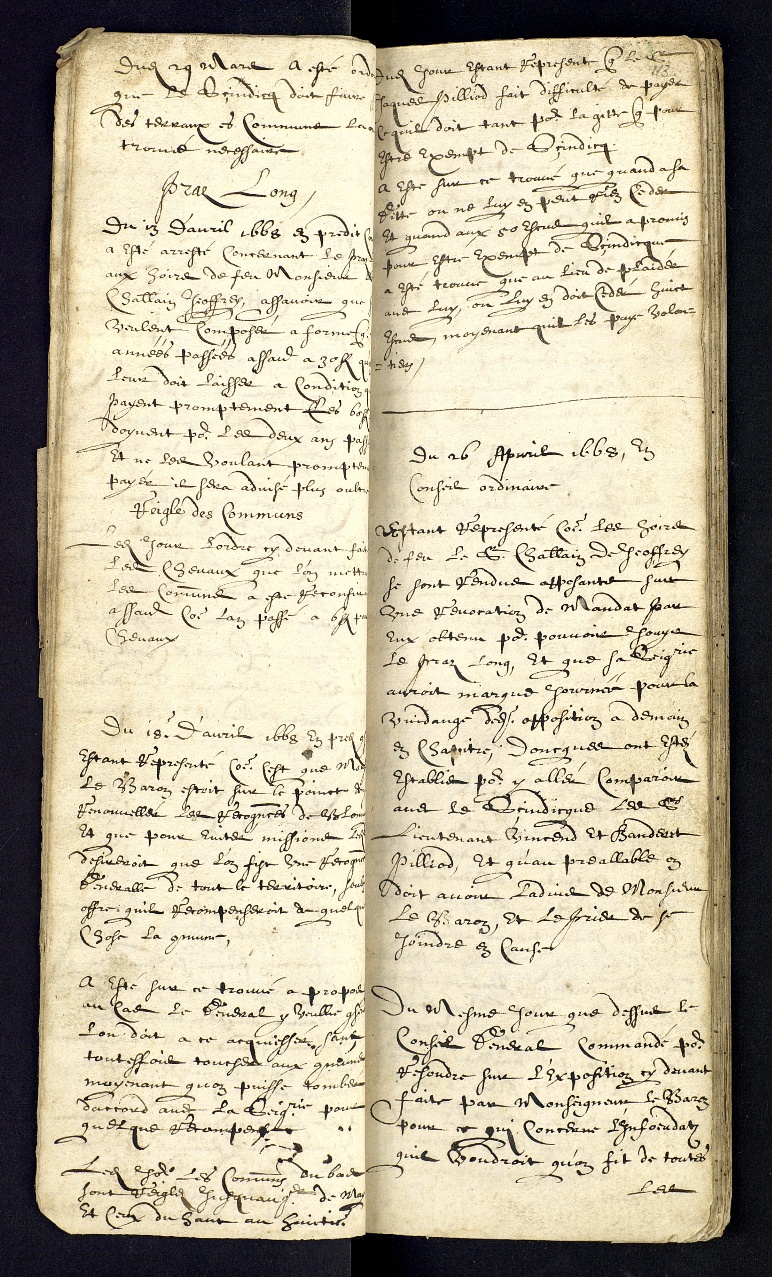 Dud 29 Mars A esté ordo
que le Scindicq doit faire
des terraux es Communs
trouvé necessaire
Praz Long,
Du 13 D'avril 1668 En predit
a Esté arresté Concernant le Praz
aux hoirs de feu Monsieur
Challain Geoffrey, assavoir que
veulent Composer a forme
années passées assavd a 30 ff
leur doit laisser a Condition
payent promptement les 60 ff
doyvent po.r les deux ans pass
Et ne les voulant promptem
payer il sera advisé plus oultre
Reigle des Communs
Led Jour l'ordre cy devant fai
les Chevaux que l'on mettr
les Commune a esté Reconfir
assavd Co.e l'an passé a 6 ff p
Chevaux
Du 18.e D'avril 1668 En pred
Estant Representé Co.e C'est que Mo
le Baron estoit sur le poinct de
Renouveller les Recog.nces de Blon
Et que pour Eviter missions
desireroit que l'on fist Une Recogn
Generalle de tout le territoire, soub
offre quil Recompenseroit de quelq
Chose la g.mune,
A Esté sur ce trouvé a propos
au Cas le General y veullie
L'on doit a ce acquiesser, sans
touteffois toucher aux
moyenant quon puisse tomber
d'accord avec la Seig.rie pour
quelque Recompense
Led Jo.r les Communs du bas
sont Reiglés Jusquau de May
Et Ceux du haut au huictie.
113
Dud Jour Estant Representé q. le S.r
Jaques Pilliod fait difficulté de payer
Ce quil doit tant po.r la giette q. pour
Estre Exempt de Scindicq.
A Esté sur ce trouvé que quand a sa
Giette on ne luy en peut Rien Ceder
Et quand aux 50 escus quil a promis
pour Estre Exempt de Scindicque
a Esté trouvé que au lieu de plaider
avec luy, on luy en doit Ceder huict
Escus moyenant quil les paye volon-
-tiers,
Du 26 Apvril 1668, En
Conseil ordinaire
Estant Representé Co.e les hoirs
de feu le S.r Challain De Geoffrey
se sont Rendus opposants sur
Une Revocation de Mandat par
Eux obtenu po.r pouvoir
le Praz Long, Et que sa Seig.rie
auroit marqué Journée pour la
vuidange de d. opposition a demain
En Chapitre, Doncques ont Estés
Establis po.r y aller Comparoir
avec le Scindicque les S.rs
Lieutenant Vincend Et Banderet
Pilliod, Et quau preallable on
doit avoir l'advis de Monsieur
le Baron, Et le prier de se
Joindre En Cause
Du Mesme Jour que dessus le
Conseil General Commandé po.r
Resoudre sur l'Exposition cy devant
faite par Monseigneur le Baron
pour ce qui Concerne l'Infeodat.n
quil Voudroit qu'on fit de toutes
les